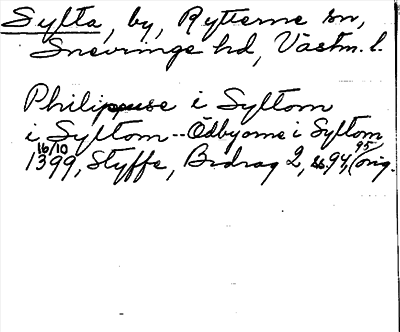 Sylta, by, Rytterne sn,
Snevringe hd, Västm. l.
Philippuse i Syltom
i Syltom -- Odbyorne i Syltom
16/10 1399, Styffe, Bidrag 2, s. 94, 95 (orig.